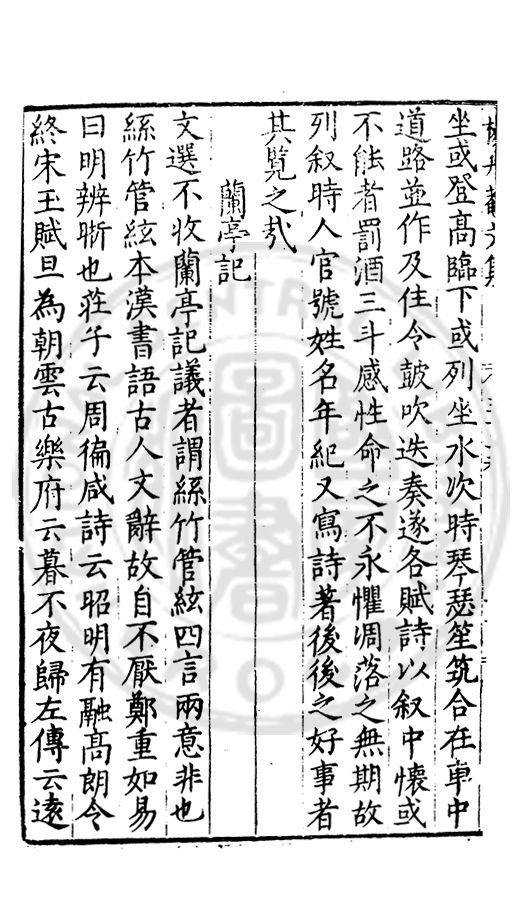 坐或登髙臨下或列坐水次時琴瑟笙筑合在車中
道路並作及住令皷吹迭奏遂各賦詩以叙中懷或
不能者罰酒三斗感性命之不永懼凋落之無期故
列叙時人官號姓名年紀又寫詩著後後之好事者
其覧之㢤
蘭亭記
文選不收蘭亭記議者謂絲竹管絃四言兩意非也
絲竹管絃本漢書語古人文辭故自不厭鄭重如易
曰明辨晰也莊子云周徧咸詩云昭明有融髙朗令
終宋玉賦旦為朝雲古樂府云暮不夜歸左傳云逺